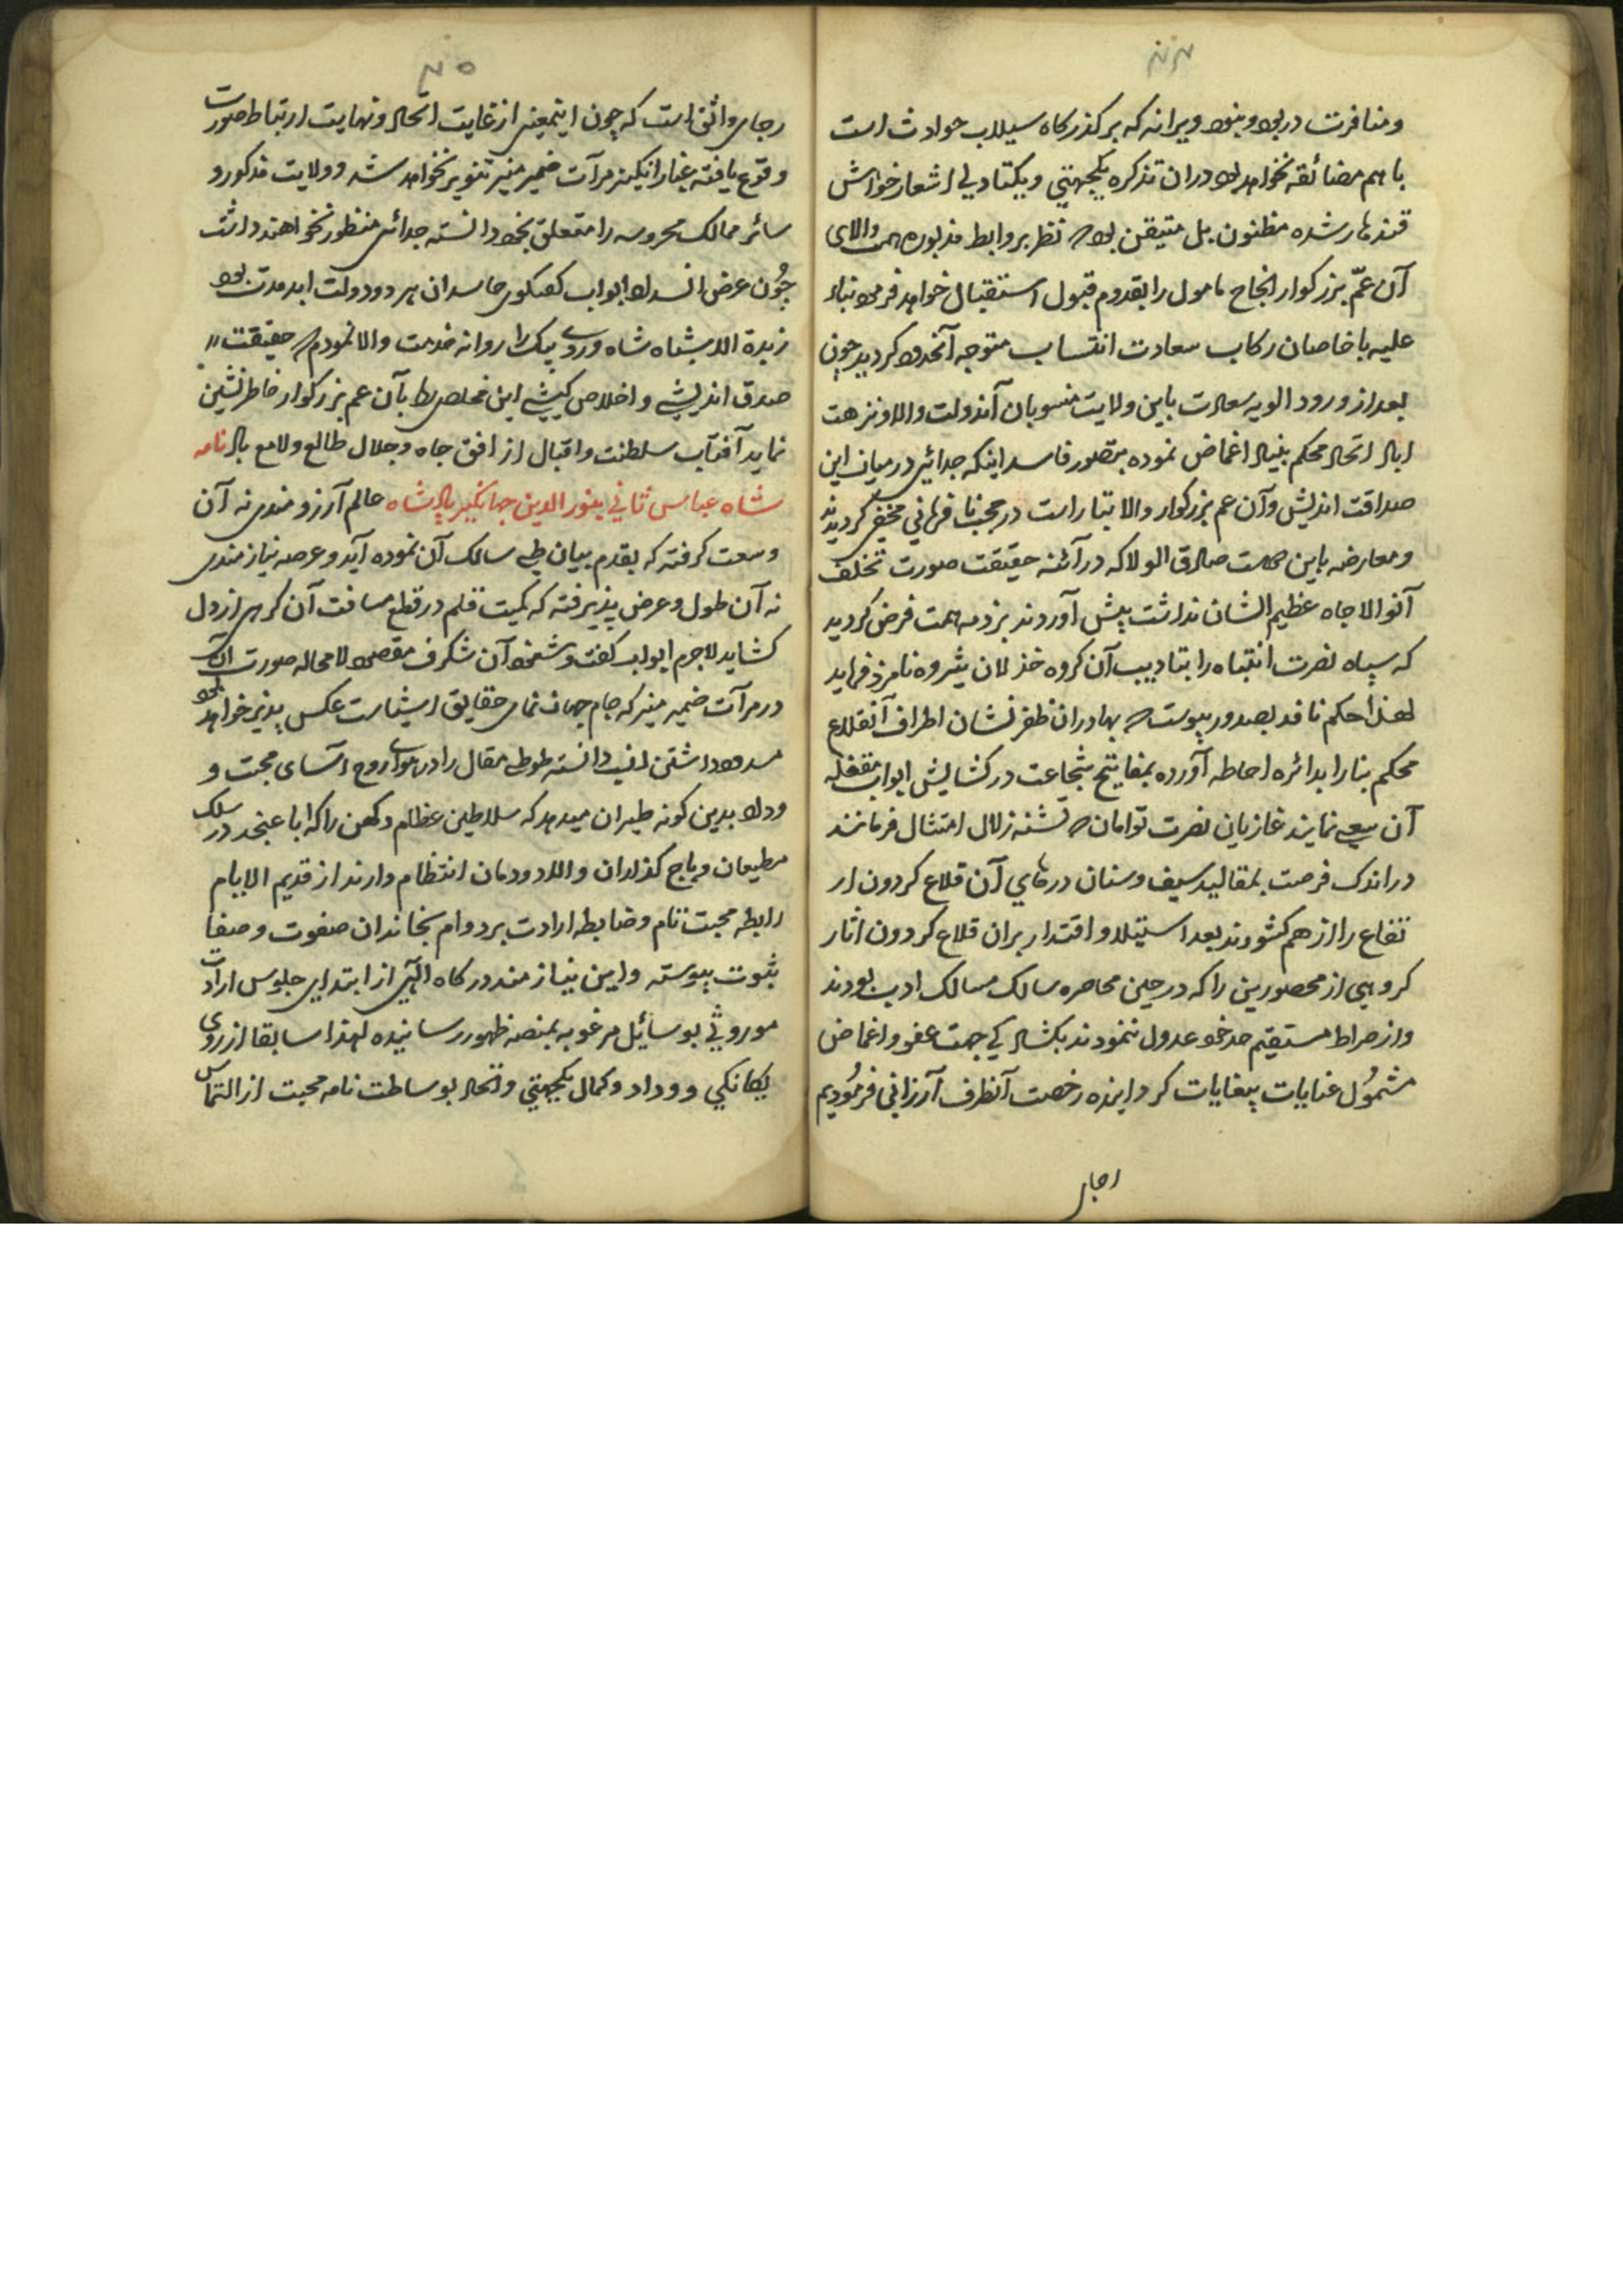 ۲۴
ومنافرت در بود ونبود ویرانه که بر کذرکاه سیلاب حوادث است
باهم مضائقه نخواهد بود دران تذکره یکجهتی ویکتادلی اشعار خواهش
قندهار شده مظنون بل متیقن بود که نظر بروابط مذبوره همت والای
آن عمّ بزرکوار انجاح مامول را بقدوم قبول استقبال خواهد فرمود بناء
علیه با خاصان رکاب سعادت انتساب متوجه آنحدود کردید چون
بعد از ورود الویه سعادت باین ولایت منسوبان آندولت والا ونزهت
اباد اتحاد محکم بنیاد اغماض نموده بتصور فاسد اینکه جدائی در میان این
صداقت اندیش وآن عم بزرکوار والا تبار است در محبت نافرمانی مخفی کردیدند
ومعارضه باین همت صادق الولا که در آئنه حقیقت صورت تخلف
آنوالاجاه عظیم الشان نداشت پیش آوردند بر ذمه همت فرض کردید
که سپاه نصرت انتباه را بتادیب آن کروه خذلان پژوه نامزد فرماید
لهذا حکم نافذ بصدور پیوست که بهادران ظفر نشان اطراف آنقلاع
محکم بنا را بدائره احاطه آورده بمفاتیح شجاعت در کشایش ابواب مقفله
آن سعی نمایند غازیان نصرت توامان که تشنه زلال امتثال فرمانند
در اندک فرصت بمقالید سیف وسنان درهای آن قلاع کردون ار
تفاع را از هم کشودند بعد استیلا و اقتدار بران قلاع کردون اثار
کروهی از محصورین را که در حین محاصره سالک مسالک ادب بودند
واز صراط مستقیم حد خود عدول ننمودند بکشاد کی جهت عفو واغماض
مشمُول عنایات بیغایات کردانیده رخصت آنطرف آرزانی فرمُودیم
رجای
۲۵
رجای واثق است که چون اینمعنی از غایت اتحاد ونهایت ارتباط صورت
وقوع یافته غبار انکیز مرآت ضمیر منیر تنویر نخواهد شد وولایت مذکور و
سائر ممالک محروسه را متعلق بخود دانسته جدائی منظور نخواهند داشت
چُون غرض انسداد ابواب کفتکوی حاسدان هر دو دولت ابد مدت بود
زبدة الاشباه شاه ویردی بیک را روانه خدمت والا نمودم که حقیقت
صدق اندیشی و اخلاص کیشی این مخلص را بآن عم بزرکوار خاطر نشین
نماید آفتاب سلطنت واقبال از افق جاه وجلال طالع ولامع باد نامه
شاه عباس ثانی بنور الدین جهانکیر پادشاه عالم آرزومندی نه آن
وسعت کرفته که بقدم بیان طی سالک آن نموده آید وعرصه نیازمندی
نه آن طول وعرض پذیرفته که کمیت قلم در قطع مسافت آن کرهی از دل
کشاید لاجرم ابواب کفت وشنود آن شکرف مقصود لامحاله صورت آن
در مرآت ضمیر منیر که جام جهان نمای حقایق اشیاست عکس پذیر خواهد بود
مسدود داشتن انسب دانسته طوطی مقال را در هوای روح آسای محبت و
وداد بدین کونه طیران میدهد که سلاطین عظام دکهن را که ابا عنجد در سلک
مطیعان وباج کذاران والا دودمان انتظام دارند از قدیم الایام
رابطه محبت تام وضابطه ارادت بر دوام بخاندان صفوت وصفا
بثبوت پیوسته واین نیازمند درکاه الهی از ابتدای جلوس ارادت
موروثی بوسائل مرغوبه بمنصه ظهور رسانیده لهذا سابقا از روی
یکانکی ووداد وکمال یکجهتی واتحاد بوساطت نامه محبت از التماس